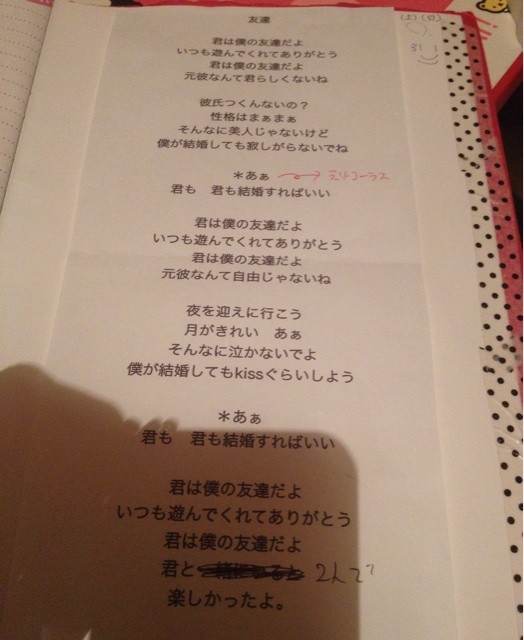 友達
(土)(日)
31 1
君は僕の友達だよ
いつも遊んでくれてありがとう
君は僕の友達だよ
元彼なんて君らしくないね
彼氏つくんないの？
性格はまぁまぁ
そんなに美人じゃないけど
僕が結婚しても寂しがらないでね
＊あぁ
君も　君も結婚すればいい
君は僕の友達だよ
いつも遊んでくれてありがとう
君は僕の友達だよ
元彼なんて自由じゃないね
夜を迎えに行こう
月がきれい　あぁ
そんなに泣かないでよ
僕が結婚してもkissぐらいしよう
＊あぁ
君も　君も結婚すればいい
君は僕の友達だよ
いつも遊んでくれてありがとう
君は僕の友達だよ
君と 2人で
楽しかったよ。